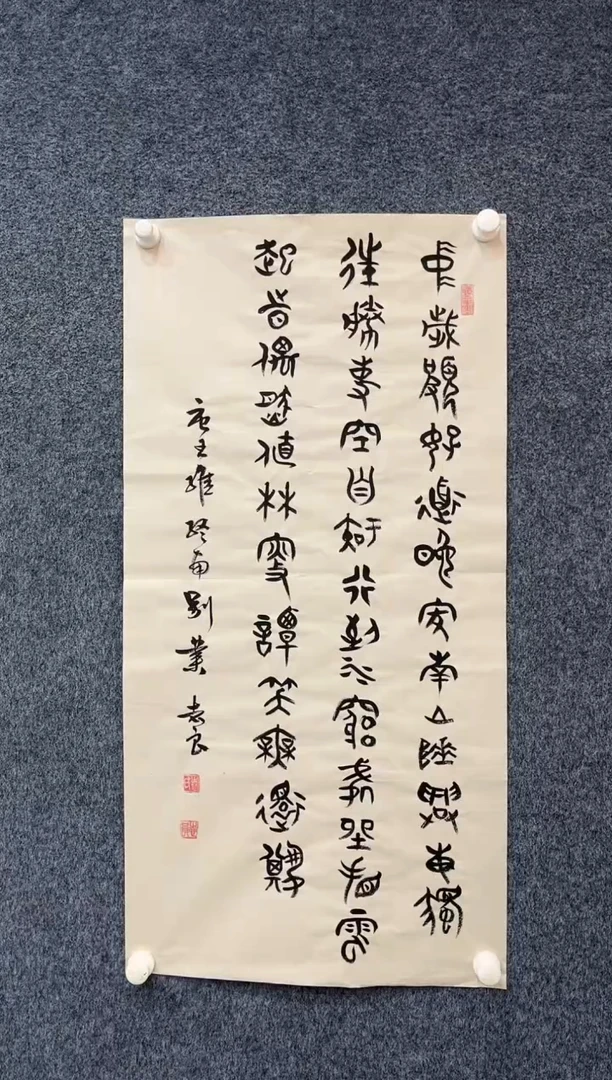 中歲頗好道晚家南山陲興每獨
往勝事空自知行到水窮處坐看雲
起時偶然值林叟譚笑無還期
唐王維終南別業